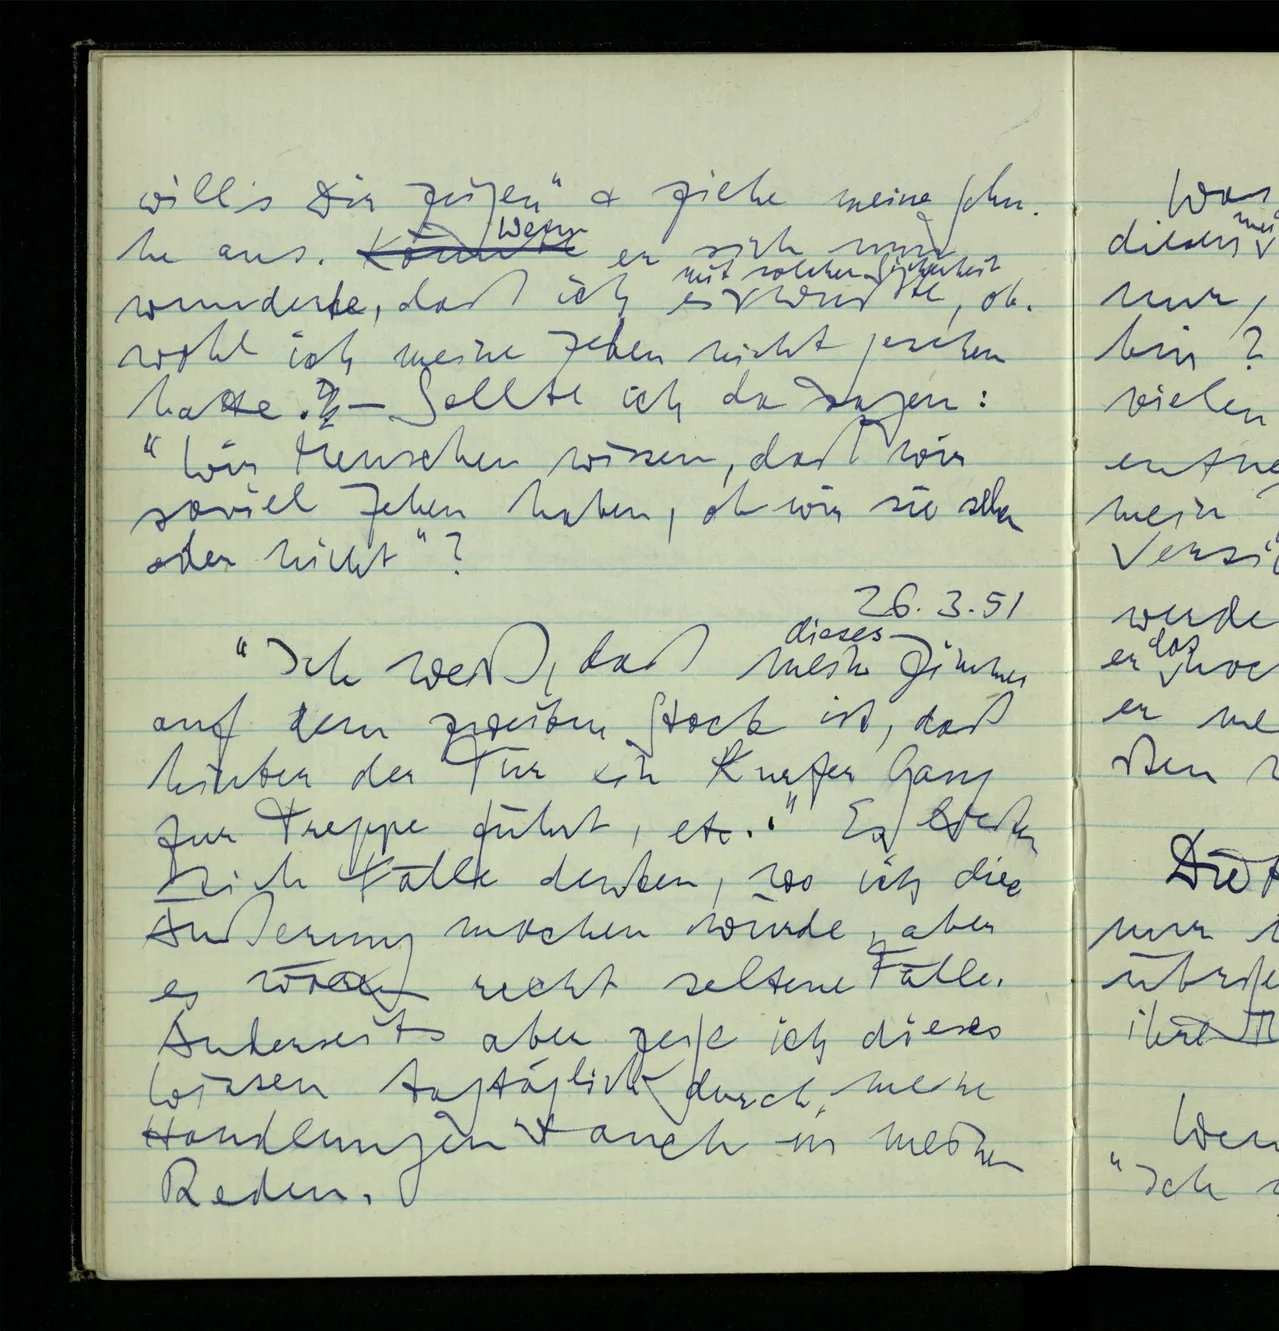 will's Dir zeigen" & ziehe meine Schu-
he aus. Könnte Wenn er sich nun
mit solcher Sicherheit
wunderte, daß ich es wußte, ob-
wohl ich meine Zehen nicht gesehen
hatte. – Sollte ich da sagen:
"Wir Menschen wissen, daß wir
soviel Zehen haben, ob wir sie sehen
oder nicht"?
26.3.51
dieses
"Ich weiß, daß mein Zimmer
auf dem zweiten Stock ist, daß
hinter der Tür ein kurzer Gang
zur Treppe führt, etc.." Es ließen
sich Fälle denken, wo ich die
Äußerung machen würde, aber
es wären recht seltene Fälle.
Anderseits aber zeige ich dieses
Wissen tagtäglich durch meine
Handlungen & auch in meinen
Reden.
Was
dieses
nur,
bin?
vielen
mein
werde
er das
er
ßen
nur
ihre
"Ich